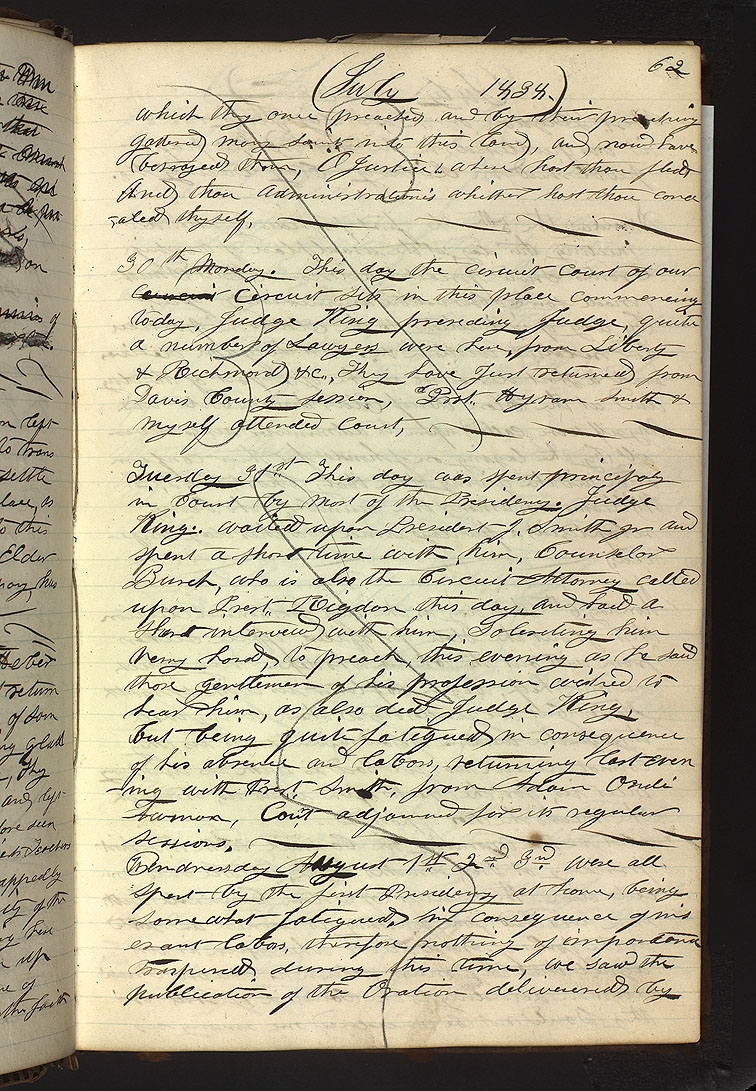 62
(July 1838.)
which they once preached and by their preaching
gathered many saints into this land, and now have
betrayed them, O Justice, where hast thou fled
And thou administration whither hast thou conce
-aled thyself.
30th Monday. This day the circuit Court of our
Circuit Sits in this place commencing
today, Judge King presiding Judge, quite
a number of Lawyers were here, from Liberty
& Richmond &c., They have Just returned from
Davis County session, Prst. Hyram Smith &
myself attended Court,
Tuesday 31st This day was spent principally
in Court by most of the Presidency. Judge
King. waited upon President J. Smith Jr and
spent a short time with him, Counselor
Burch, who is also the Circuit Attorney called
upon Prest. Rigdon this day, and had a
short interview with him, Soliciting him
very hard, to preach, this evening as he said
those gentlemen of his profession wished to
hear him, as also did Judge King,
but being quite fatigued, in consequence
of his absence and labors, returning last even
-ing with Prest. Smith, from Adam Ondi
Awman, Court adjourned for its regular
sessions.
Wendnesday August 1st 2nd 3rd were all
spent by the first Presidency at home, being
somewhat fatigued, in consequence of
labor, therefore nothing of importance
transpired during this time, we saw the
publication of the Oration delivered by
on
of
left
to trans
settle
place, as
to this
Elder
has
Heber
return
of som
They
and left
of the
here
up
of
the faith